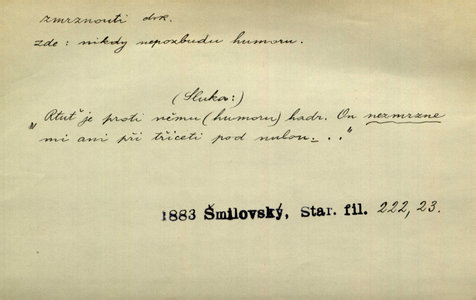 zmrznouti dok.
zde: nikdy nepozbudu humoru.
(Sluka:)
„Rtuť je proti němu (humoru) hadr. On nezmrzne
mi ani při třiceti pod nulou_ . .“
1883 Šmilovský, Star. fil. 222, 23.